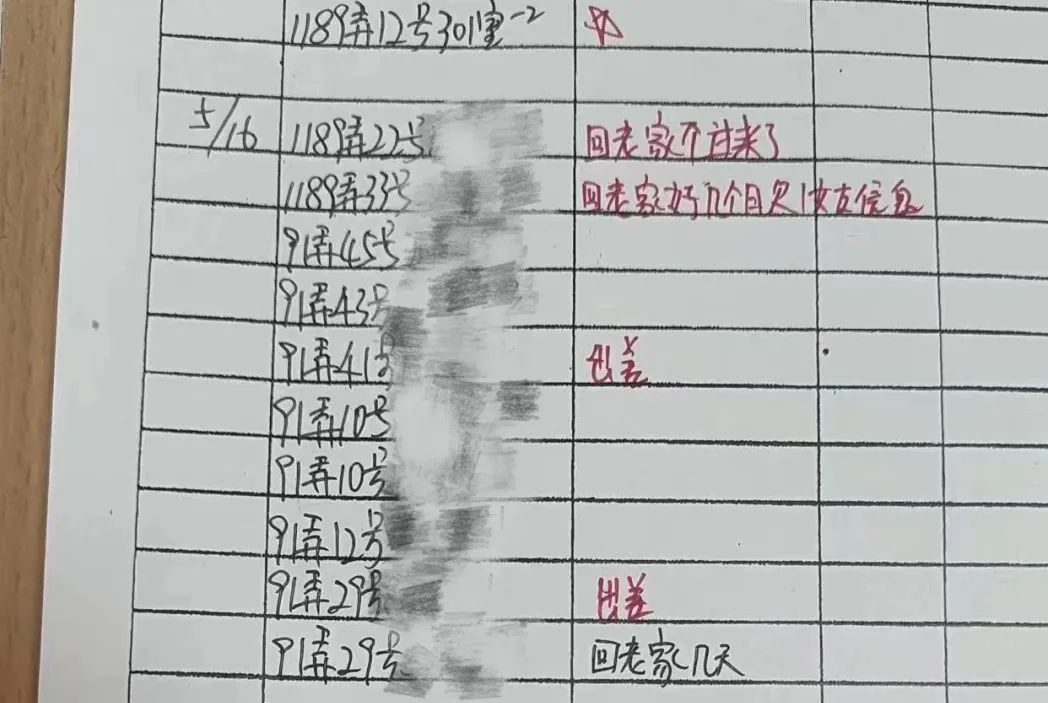 1189弄12号301室-2
5/16 1189弄22号 回老家不过来了
1189弄33号 回老家好几个月欠1女友信息
91弄45号
91弄43号
91弄41号 出差
91弄10号
91弄10号
91弄12号
91弄29号 出差
91弄29号 回老家几天